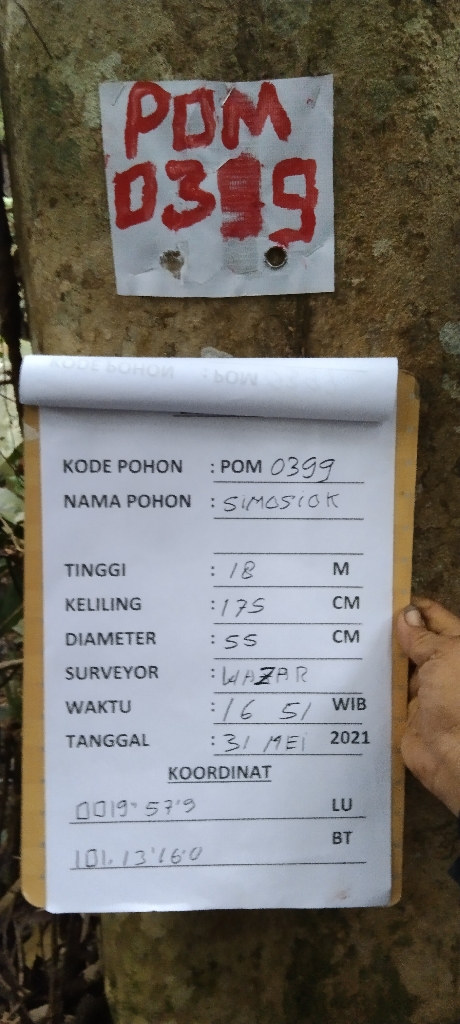 POM
0399
KODE POHON : POM 0399
NAMA POHON : SIMOSIOK
TINGGI : 18 M
KELILING : 175 CM
DIAMETER : 55 CM
SURVEYOR : WAZAR
WAKTU : 16 51 WIB
TANGGAL : 31 MEI 2021
KOORDINAT
0019° 57'9 LU
BT
101. 13'16.0